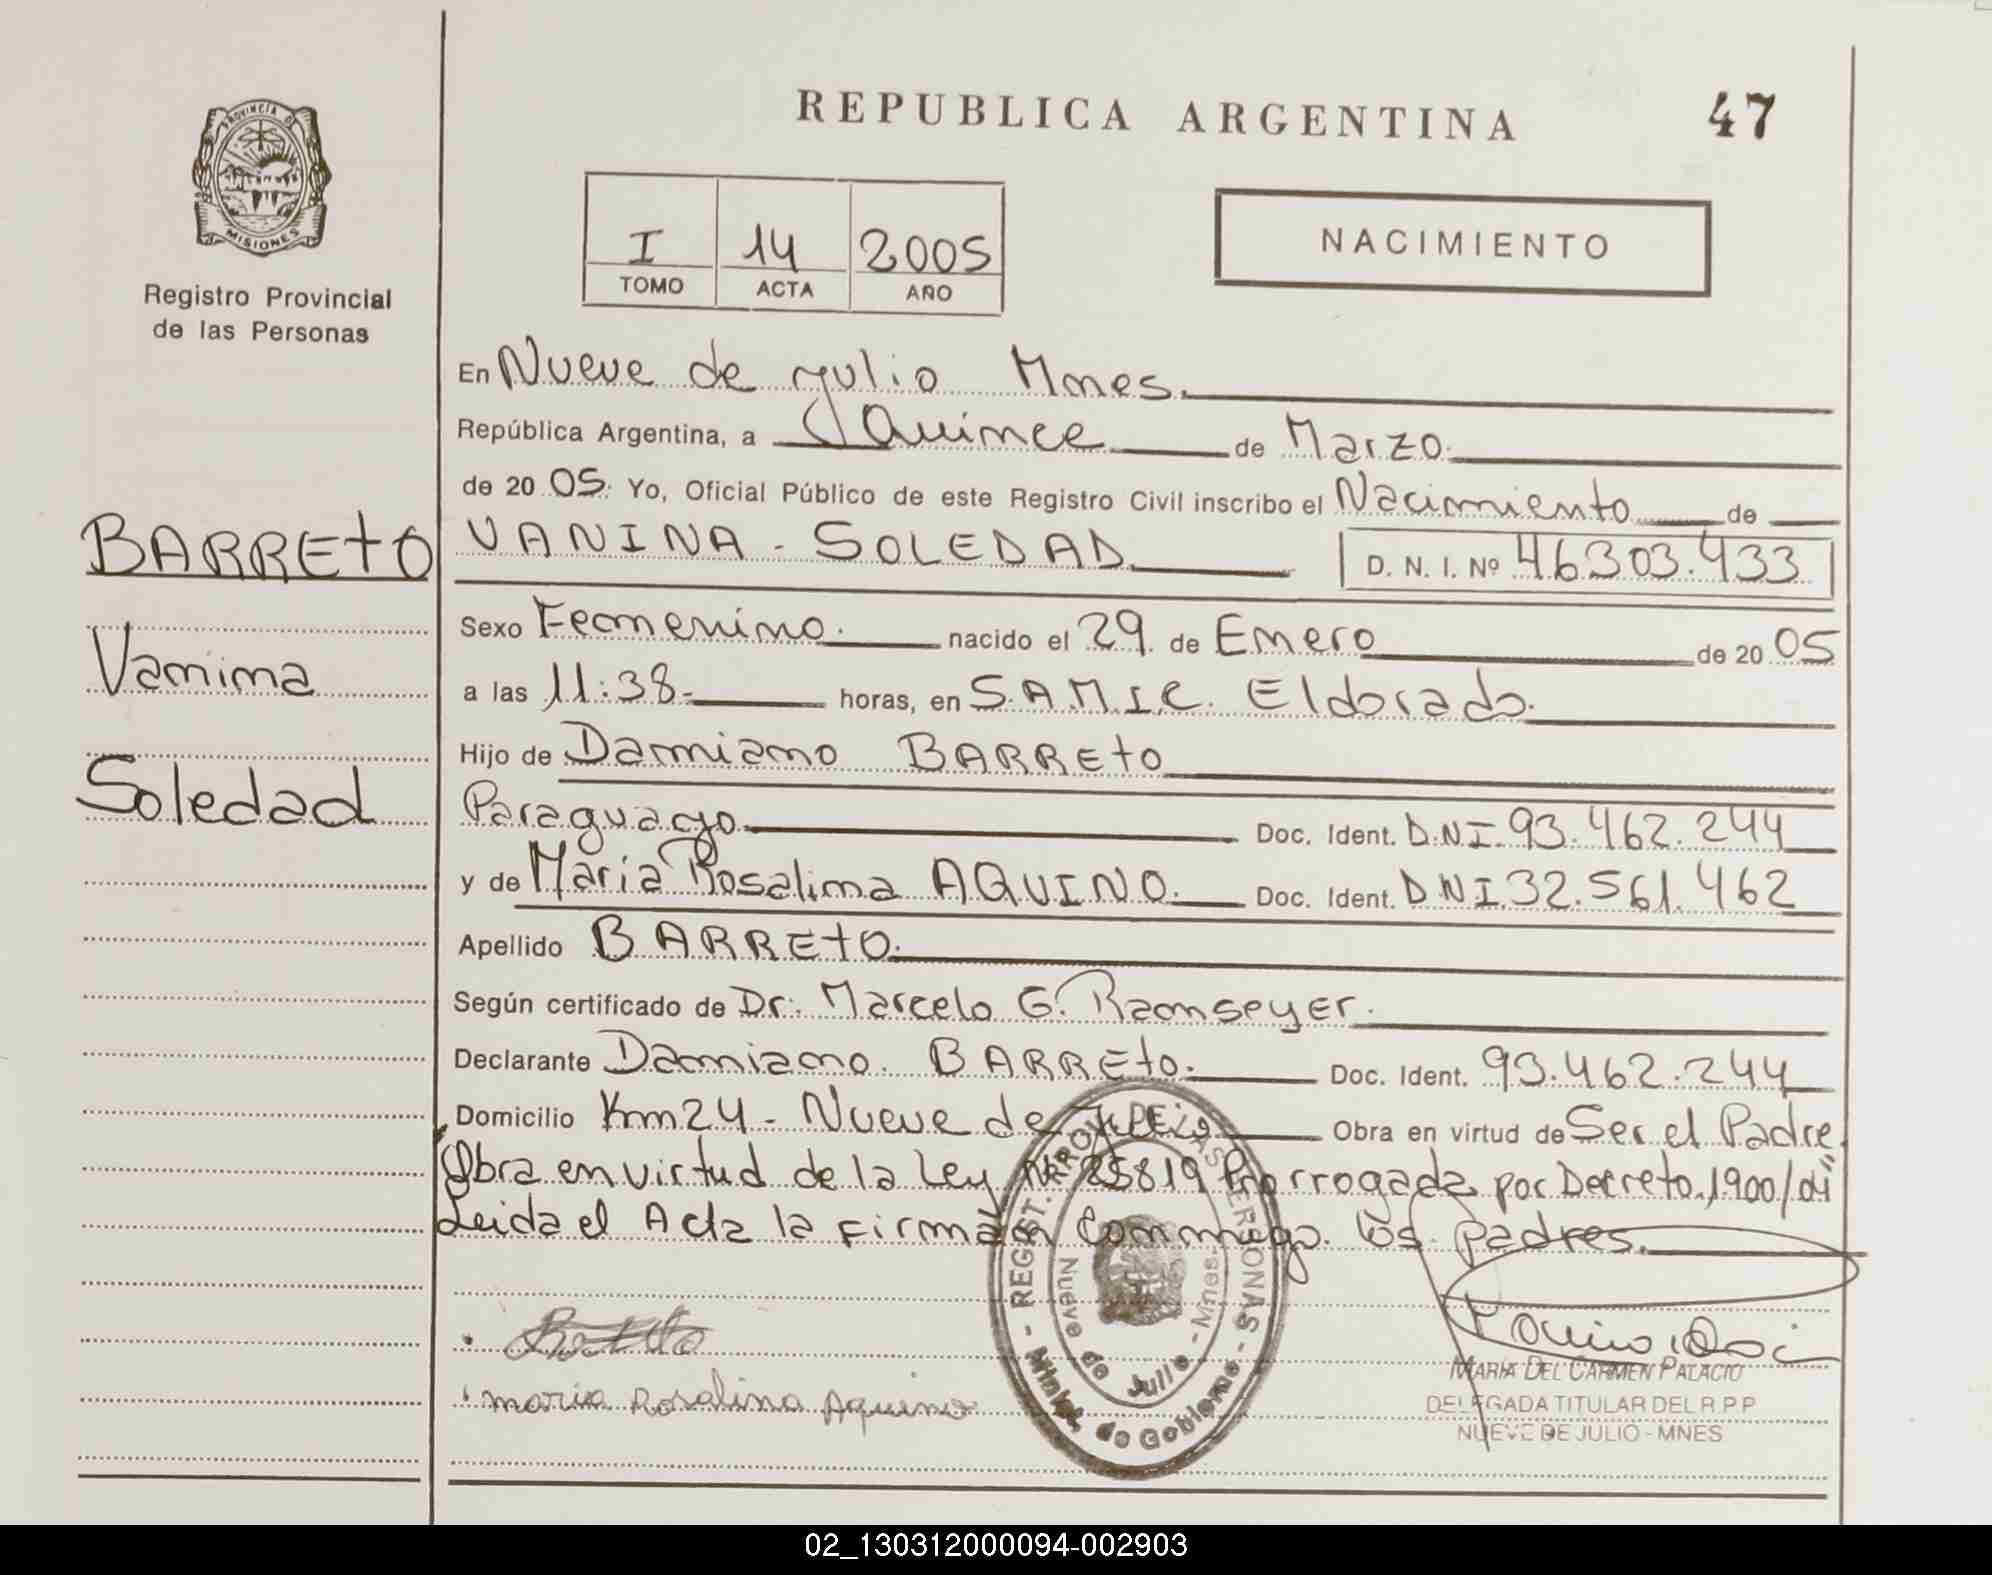 REPUBLICA ARGENTINA
47
PROVINCIA DE
MISIONES
Registro Provincial
de las Personas
I 14 2005
TOMO ACTA AÑO
NACIMIENTO
En Nueve de Julio Mnes.
República Argentina, a Quince de Marzo
de 20 05. Yo, Oficial Público de este Registro Civil inscribo el Nacimiento de
BARRETO
VANINA - SOLEDAD D. N. I. Nº 46303.433
Sexo Femenino. nacido el 29 de Enero de 20 05
Vanina
a las 11:38 horas, en S.A.M.I.C. Eldorado.
Hijo de Damiano BARRETO
Soledad
Paraguayo Doc. Ident. D.N.I. 93.462.244
y de Maria Rosalina AQUINO. Doc. Ident. DNI.32.561.462
Apellido BARRETO.
Según certificado de Dr. Marcelo G. Ramseyer.
Declarante Damiano BARRETO. Doc. Ident. 93.462.244
Domicilio Km24 - Nueve de Julio Obra en virtud de Ser el Padre.
"Obra en virtud de la Ley Nº 25819 Prorrogada por Decreto 1900/04"
Leida el Acta la Firman Conmigo los padres.
REGIST. PROV. DE LAS PERSONAS
Nueve de Julio - Mnes.
Minist. de Gobierno
maria Rosalina Aquino
MARIA DEL CARMEN PALACIO
DELEGADA TITULAR DEL R.P.P
NUEVE DE JULIO - MNES
02_130312000094-002903